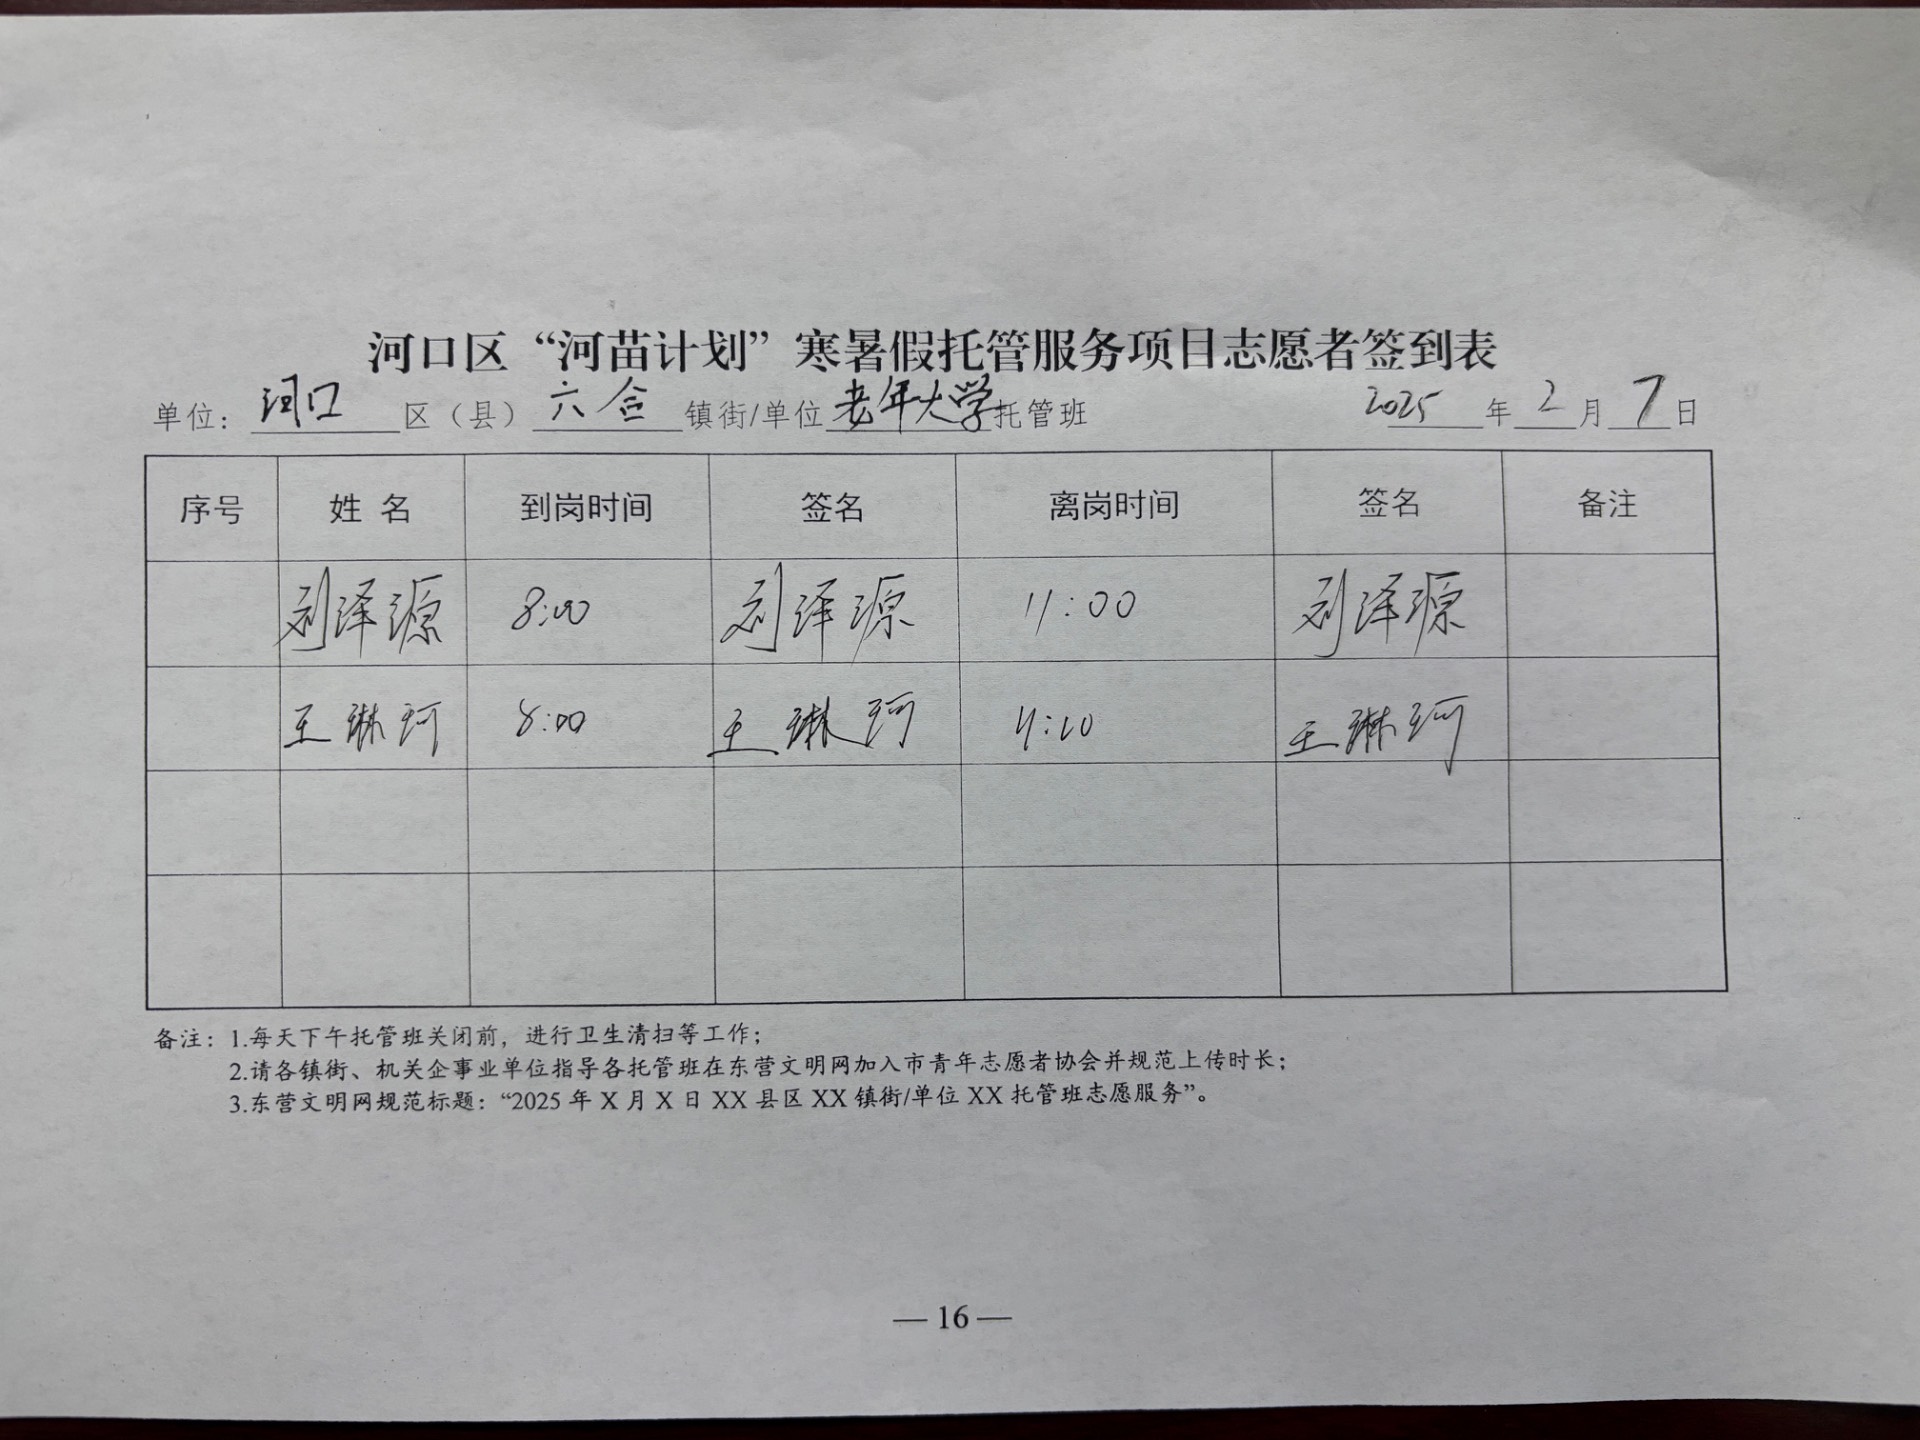 河口区“河苗计划”寒暑假托管服务项目志愿者签到表
单位：河口区（县）六合镇街/单位老年大学托管班 2025年2月7日
序号 姓名 到岗时间 签名 离岗时间 签名 备注
刘泽源 8:00 刘泽源 11:00 刘泽源
王琳珂 8:00 王琳珂 王琳珂
备注：1.每天下午托管班关闭前，进行卫生清扫等工作；
2.请各镇街、机关企事业单位指导各托管班在东营文明网加入市青年志愿者协会并规范上传时长；
3.东营文明网规范标题：“2025年X月X日XX县区XX镇街/单位XX托管班志愿服务”。
— 16 —